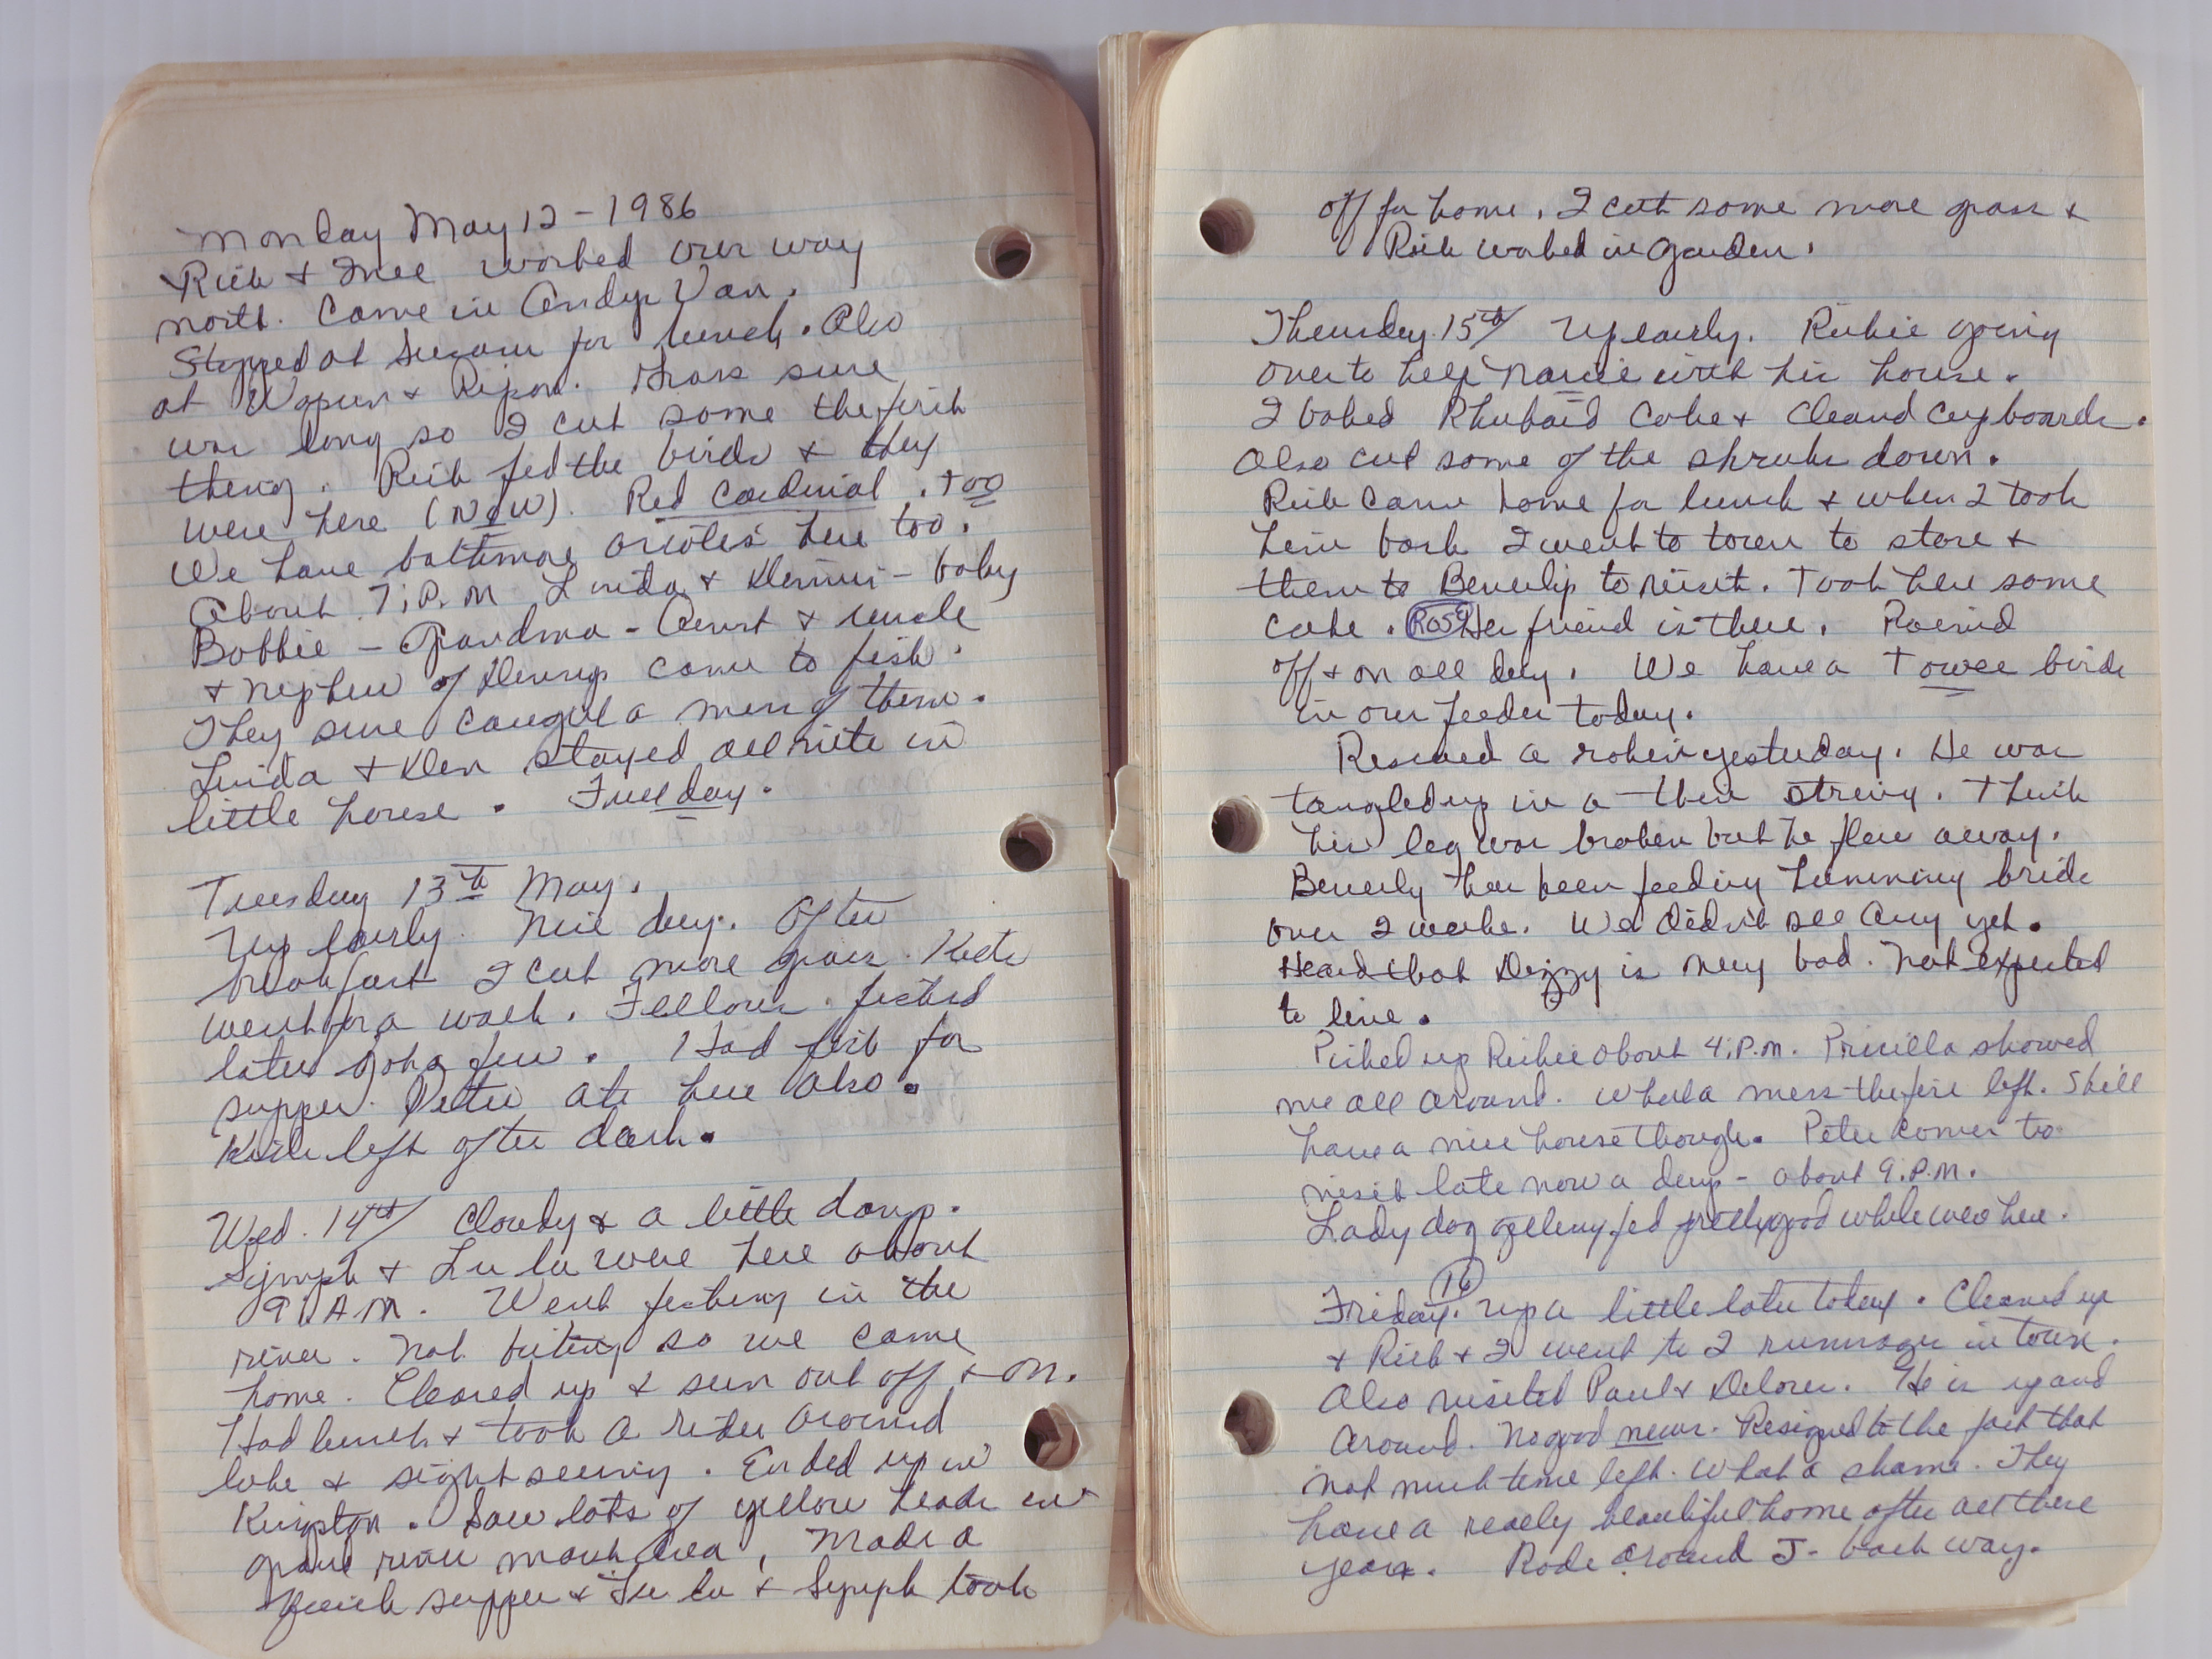 Monday May 12 - 1986
Rich & I mee worked our way
north. Came in Andys Van.
Stopped at for lunch. Also
at Wapun & Ripon. Grass sure
was long so I cut some the first
thing. Rich fed the birds & they
were here (NOW). Red Cardinal. too
We have baltimore orioles here too.
About 7:P.M Linda & Dennis - baby
Bobbie - Grandma - Aunt & uncle
& nephew of Dennys came to fish.
They sure caught a mess of them.
Linda & Den stayed all nite in
little house. Full day.
Tuesday 13th May.
Up early. Nice day. After
breakfast I cut more grass. Kids
went for a walk. Fellows fished
later got a few. Had fish for
supper. Peter ate here also.
Kids left after dark.
Wed. 14th/ Cloudy & a little damp.
Symph & Lu lu were here about
9:AM. Went fishing in the
river. Not biting so we came
home. Cleared up & sun out off & on.
Had lunch & took a rides around
lake & sight seeing. Ended up in
Kingston. Saw lots of yellow heads in
river marsh area, Made a
quick supper & Lu lu & Symph took
off for home. I cut some more grass &
Rich worked in garden.
Thursday 15th/ Up early. Richie going
over to help with his house.
I baked Rhubarb Cake & Cleand Cupboards.
Also cut some of the shrubs down.
Rich came home for lunch & when I took
him back I went to town to store &
then to Beverly's to visit. Took her some
cake. Rose Her friend is there. Rained
off & on all day. We have a Towee birds
in our feeder today.
Rescued a robin yesterday. He was
tangled up in a thin string. Think
his leg was broken but he flew away.
Beverly has been feeding humming birds
over 2 weeks. We didn't see any yet.
Heard that Dizzy is very bad. Not expected
to live.
Picked up Richie about 4:P.M. Pricilla showed
me all around. What a mess the fire left. Still
have a nice house though. Peter comes to
visit late now a days - about 9:P.M.
Lady dog getting fed pretty good while were here.
Friday. 16 up a little later today. Cleaned up
& Rich & I went to 2 rummage in town.
Also visited Paul & Delores. He is up and
around. No good news. Resigned to the fact that
not much time left. What a shame. They
have a really beautiful home after all these
years. Rode around J- back way.